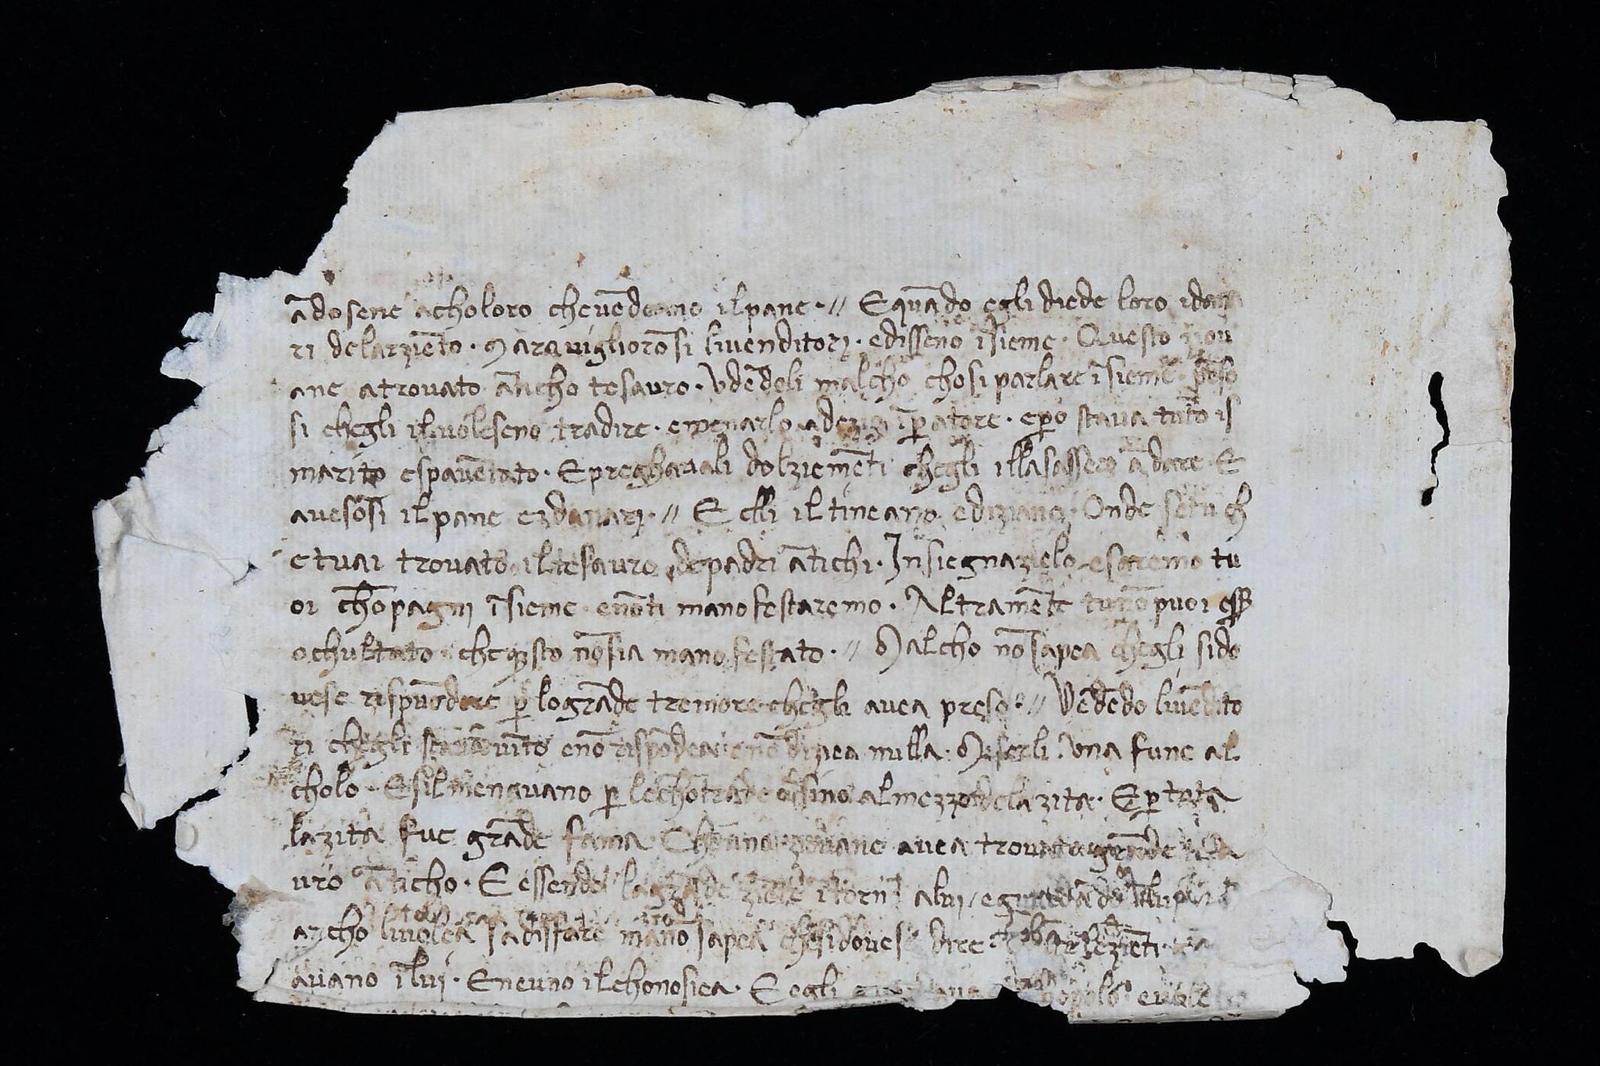 ādosene acholoro chevēdeano ilpane · // Equādo egli diede loro idana
ri delarziēto · Maravigliorōsi livenditori · edisseno īsieme · Questo giov
ane atrovato āticho tesauro · Vdēdoli malcho chosi parlare īsieme pēso
si chegli ilvoleseno tradire · emenarlo adezio īpatore · epo stava tuto is
marito espavētato · Epreghavali dolziemēti chegli illasasseno ādare · E
avesosi ilpane ezdanari · // E elli iltineano edizianò · Onde setu ch
etuai trovato iltesauro depadri ātichi · Insiegnazielo esaremo tu
oi chōpagni īsieme enōti manofestaremo · Altramēte tunō puoi eser
ochultato chequsto nōsia manofestato · // Malcho nōsapea chegli sido
vese rispūdere p lograde tremore chegli avea preso · // Vedēdo livēdito
ri chegli stava vito enō rispōdea enō dizea nulla · Miserli · Vna fune al
cholo · Esilmenavano p lechōtrade īsino almezzo delazita · Ep tuta
lazita fue grāde fama Cheuno zovane avea trovato grāde tesa
vro āticho · E essendo la zēte itorno alui / eguardādo
ancho livolea sadisfare manō sapea chesidovesi dire
avano īlui · Eneuno ilchonosiea · E egli popolo